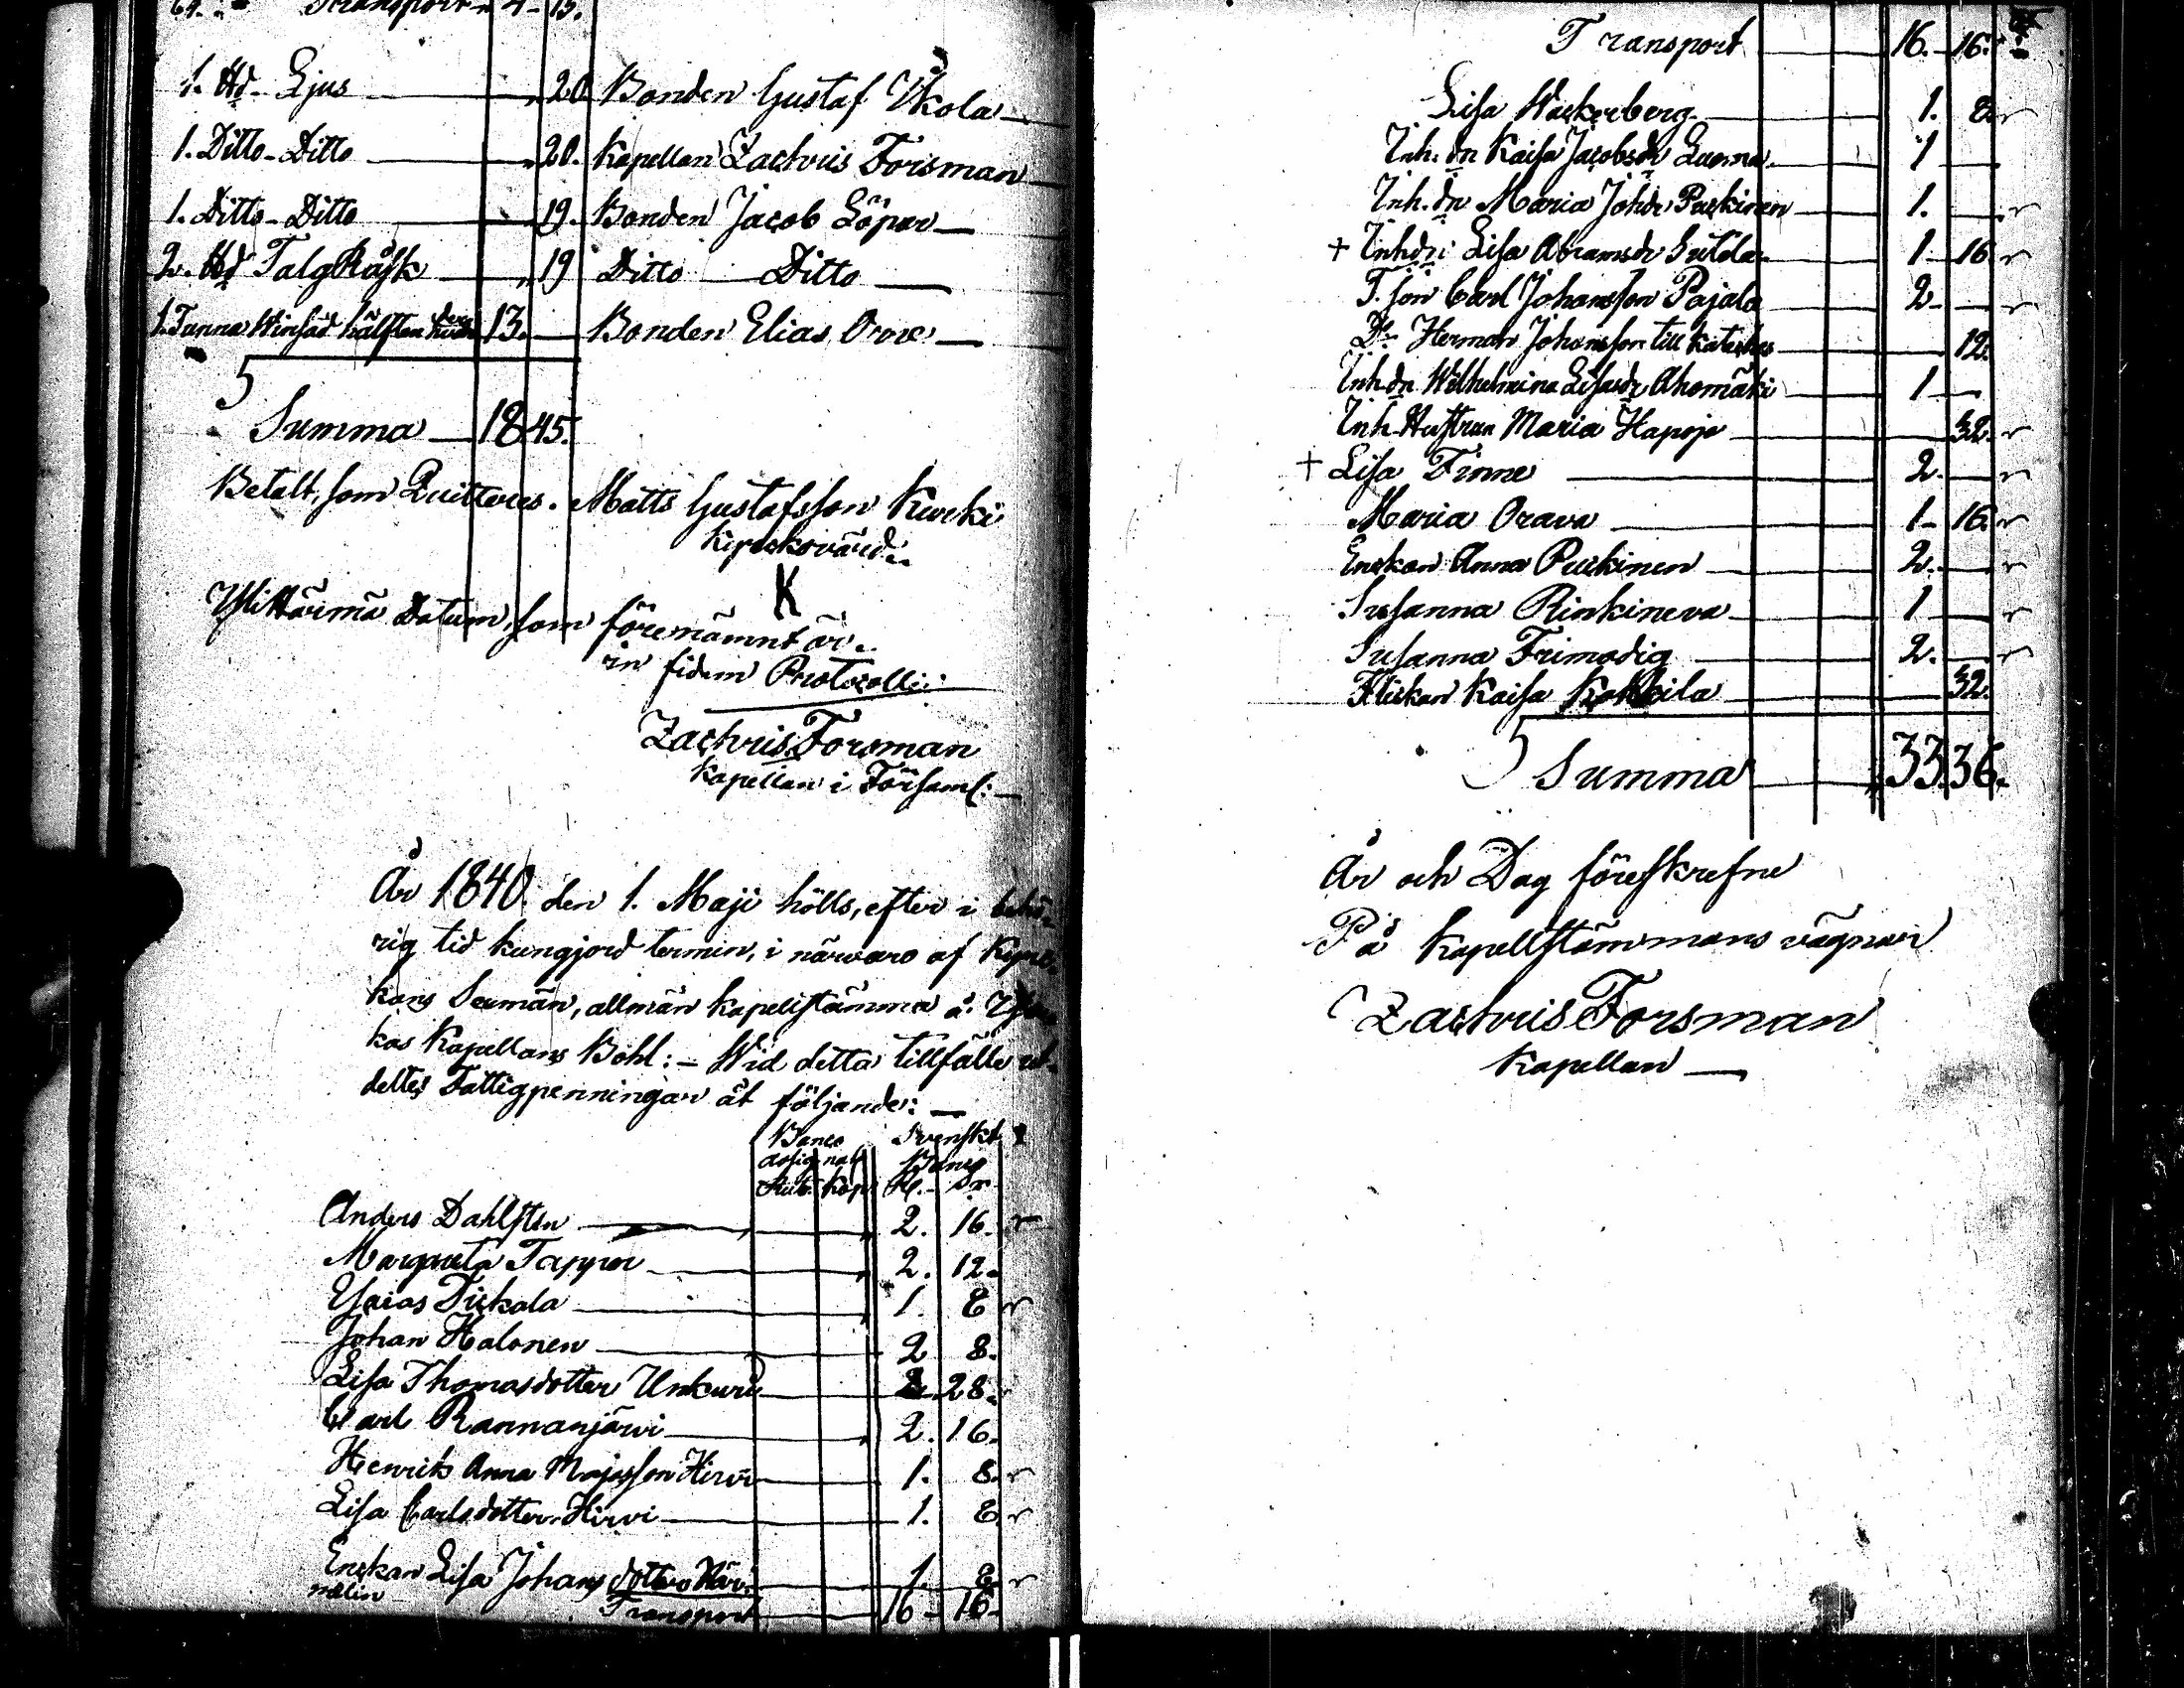 Transport 4 - 15.
1. ℔ - Ljus 20 Bonden Gustaf Ykola
1. Ditto - Ditto 20. Kapellan Zachris Forsman
1. Ditto - Ditto 19. Bonden Jacob Löpar
2. ℔ Talg Råsk 19 Ditto Ditto
1. Tunna hälften 13. — Bonden Elias Orava
Summa 18 45.
Betalt, som Quitteres. Matts Gustafsson Kurki
kyrckovärd.
K
Ylihärmä Datum, som förenämnt är.
in fidem Protocolli:
Zachris Forsman
Kapellan i Församl:
År 1840. den 1. Maji hölls, efter i behö-
rig tid kungjord termin, i närvaro af Kyrc-
kans Sexmän, allmän kapellstämma å
kas Kapellans Bohl: - Wid detta tillfälle ut-
deltes Fattigpenningar åt följande:
Banco Svenskt
assignat Banco
Rub. Kop. R. - sr
Anders Dahlsten 2. 16.
Margareta Tappar 2. 12.
Esaias Tickala 1. 8
Johan Halonen 2 8.
Lisa Thomasdotter Unkuri 2. 28.
Carl Rannanjärvi 2. 16.
Henrik Anna Majasson Hirvi 1. 8.
Lisa Carlsdotter Hirvi 1. 8.
Enckan Lisa Johansdotter Här- 1. 8
mälin
Transport 16 - 16.
Transport 16. 16.
Lisa Wackerberg 1. 8.
Inh. dn Kaisa Jacobsdr Luoma 1 —
Inh. dn Maria Johdr Puckinen 1. —
+ Inhdn Lisa Abramsdr Sutela 1 - 16
T. son Carl Johansson Pajala 2 —
Do Herman Johansson till 12.
Inhdn Wilhelmina Lisasdr Ahomäki 1 —
Inh. Hustrun Maria Hapoja 32.
+ Lisa Finne 2. —
Maria Orava 1 - 16.
Enckan Anna Puckinen 2. —
Susanna Rinkineva 1 —
Susanna Frimodig 2. —
Flickan Kaisa Kokkila 32.
Summa 33 36.
År och Dag föreskrefne
På Kapellstämmans vägnar
Zachris Forsman
Kapellan